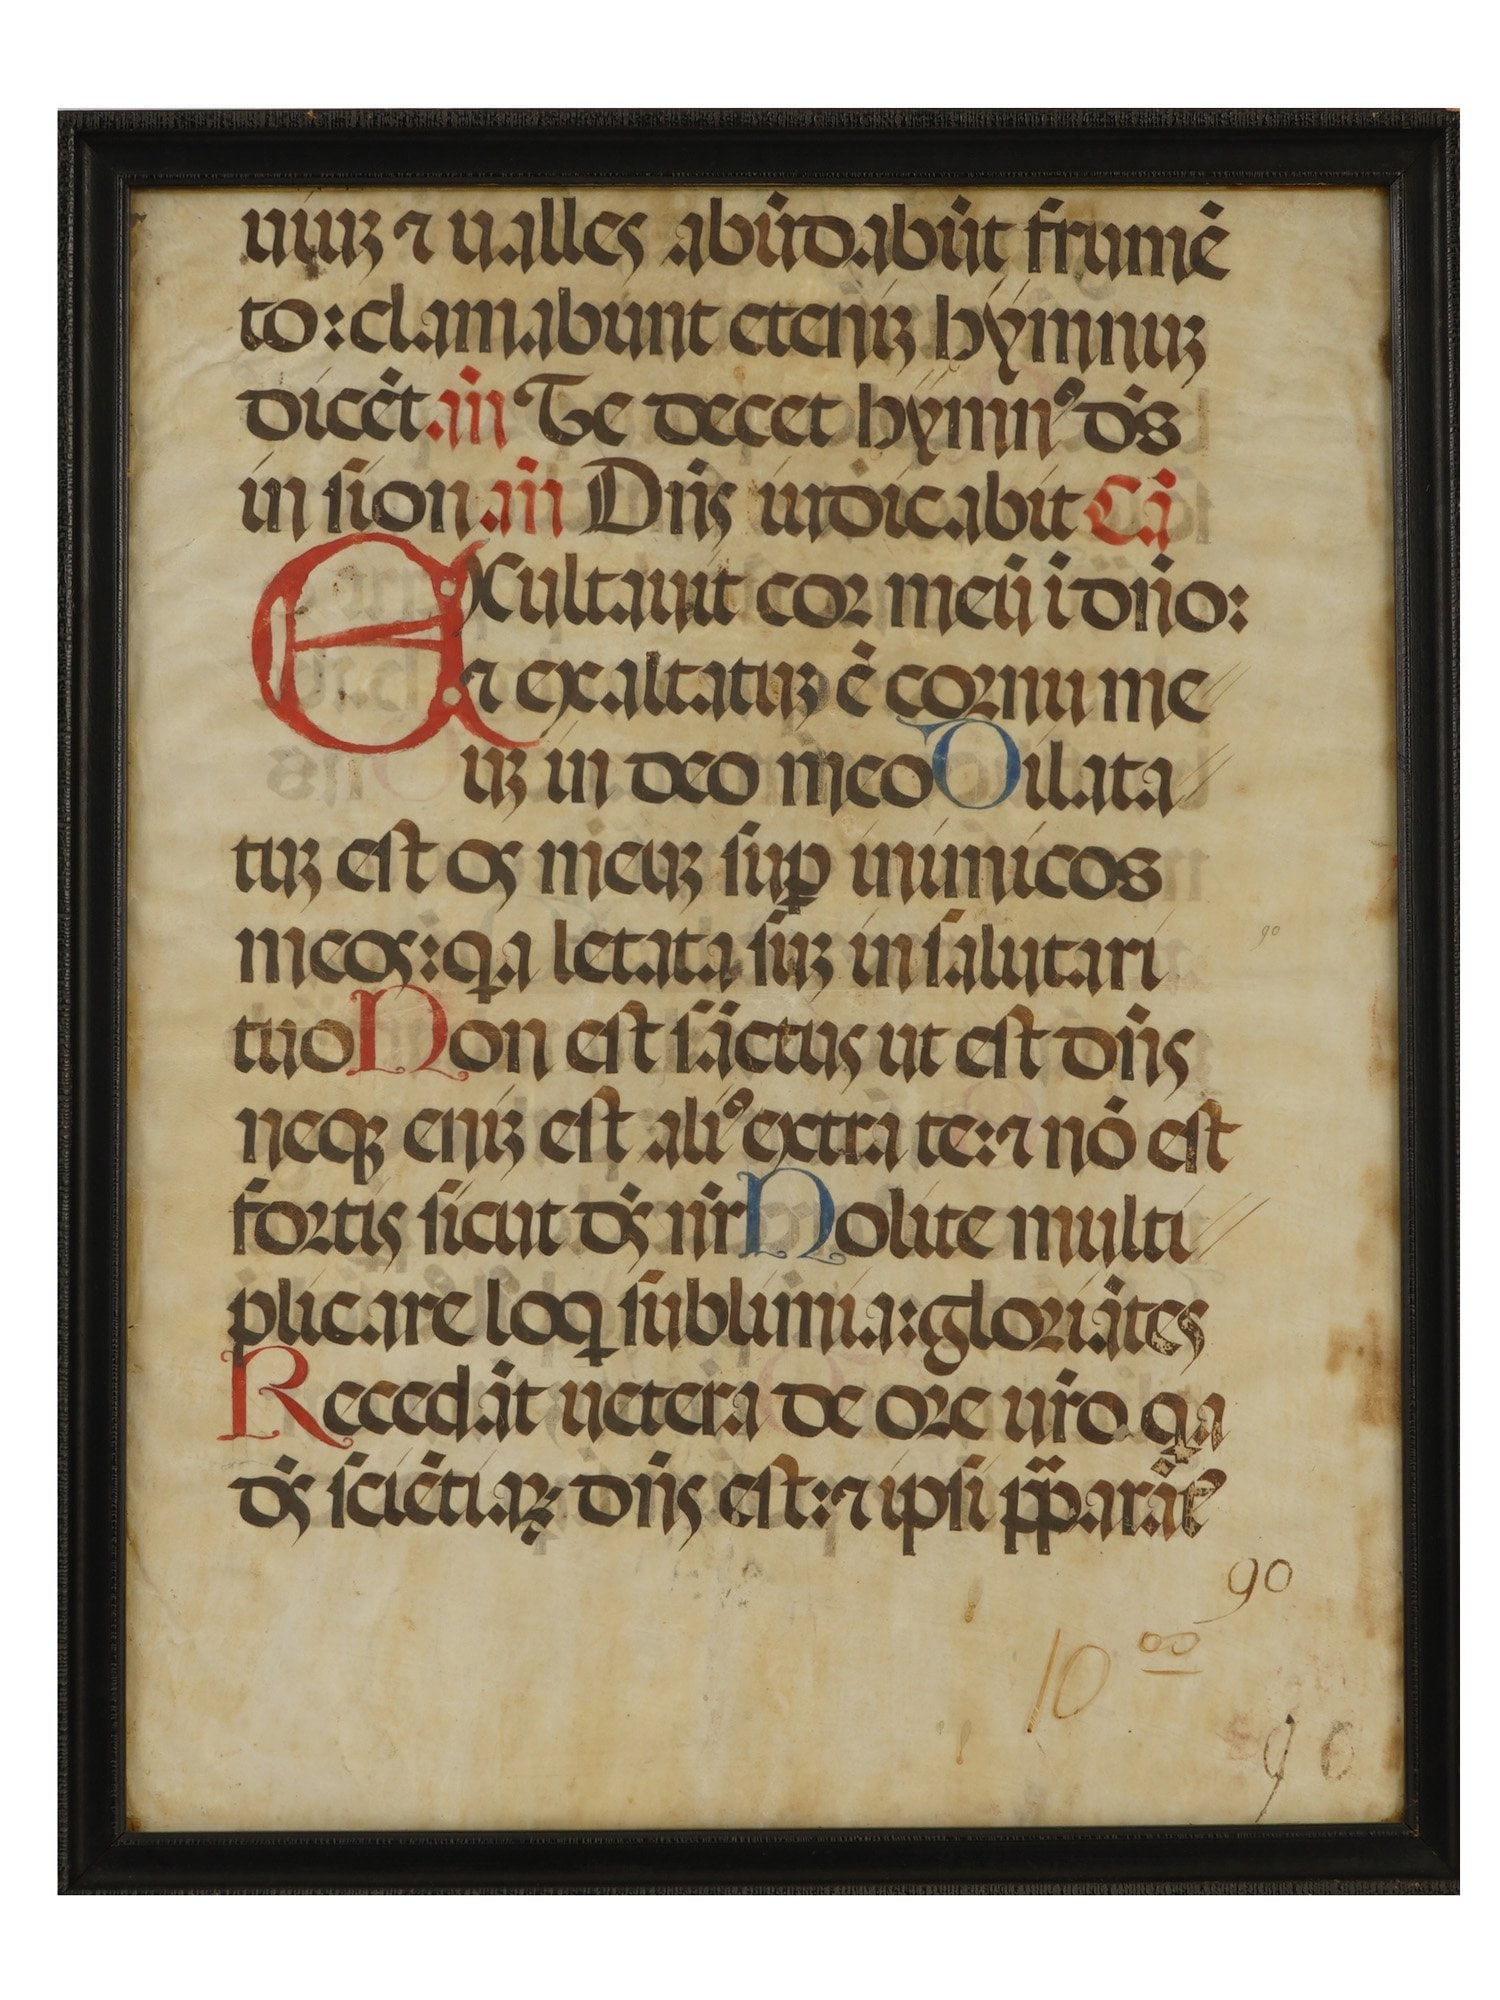 uiuꝫ ⁊ ualles abūdabūt frumē
to: clamabunt eteniꝫ hẏmnuꝫ
dicēt. añ Te decet hẏmnꝰ ds̄
in sion. añ Dñs iudicabit Cā
Exultauit cor meū ī dño:
⁊ exaltatuꝫ ē cornu me
uꝫ in deo meo Dilata
tuꝫ est os meuꝫ suꝑ inimicos
meos: qa letata suꝫ in salutari
tuo Non est sāctus ut est dñs
neqꝫ eniꝫ est aliꝰ extra te: ⁊ nō est
fortis sicut ds̄ nr̄ Nolite multi
plicare loq sublimia: gloriātes
Recedāt uetera de ore uro qa
ds̄ sciētiaꝝ dñs est: ⁊ ipsi p̄parāt᷑
90
90
10 00
90